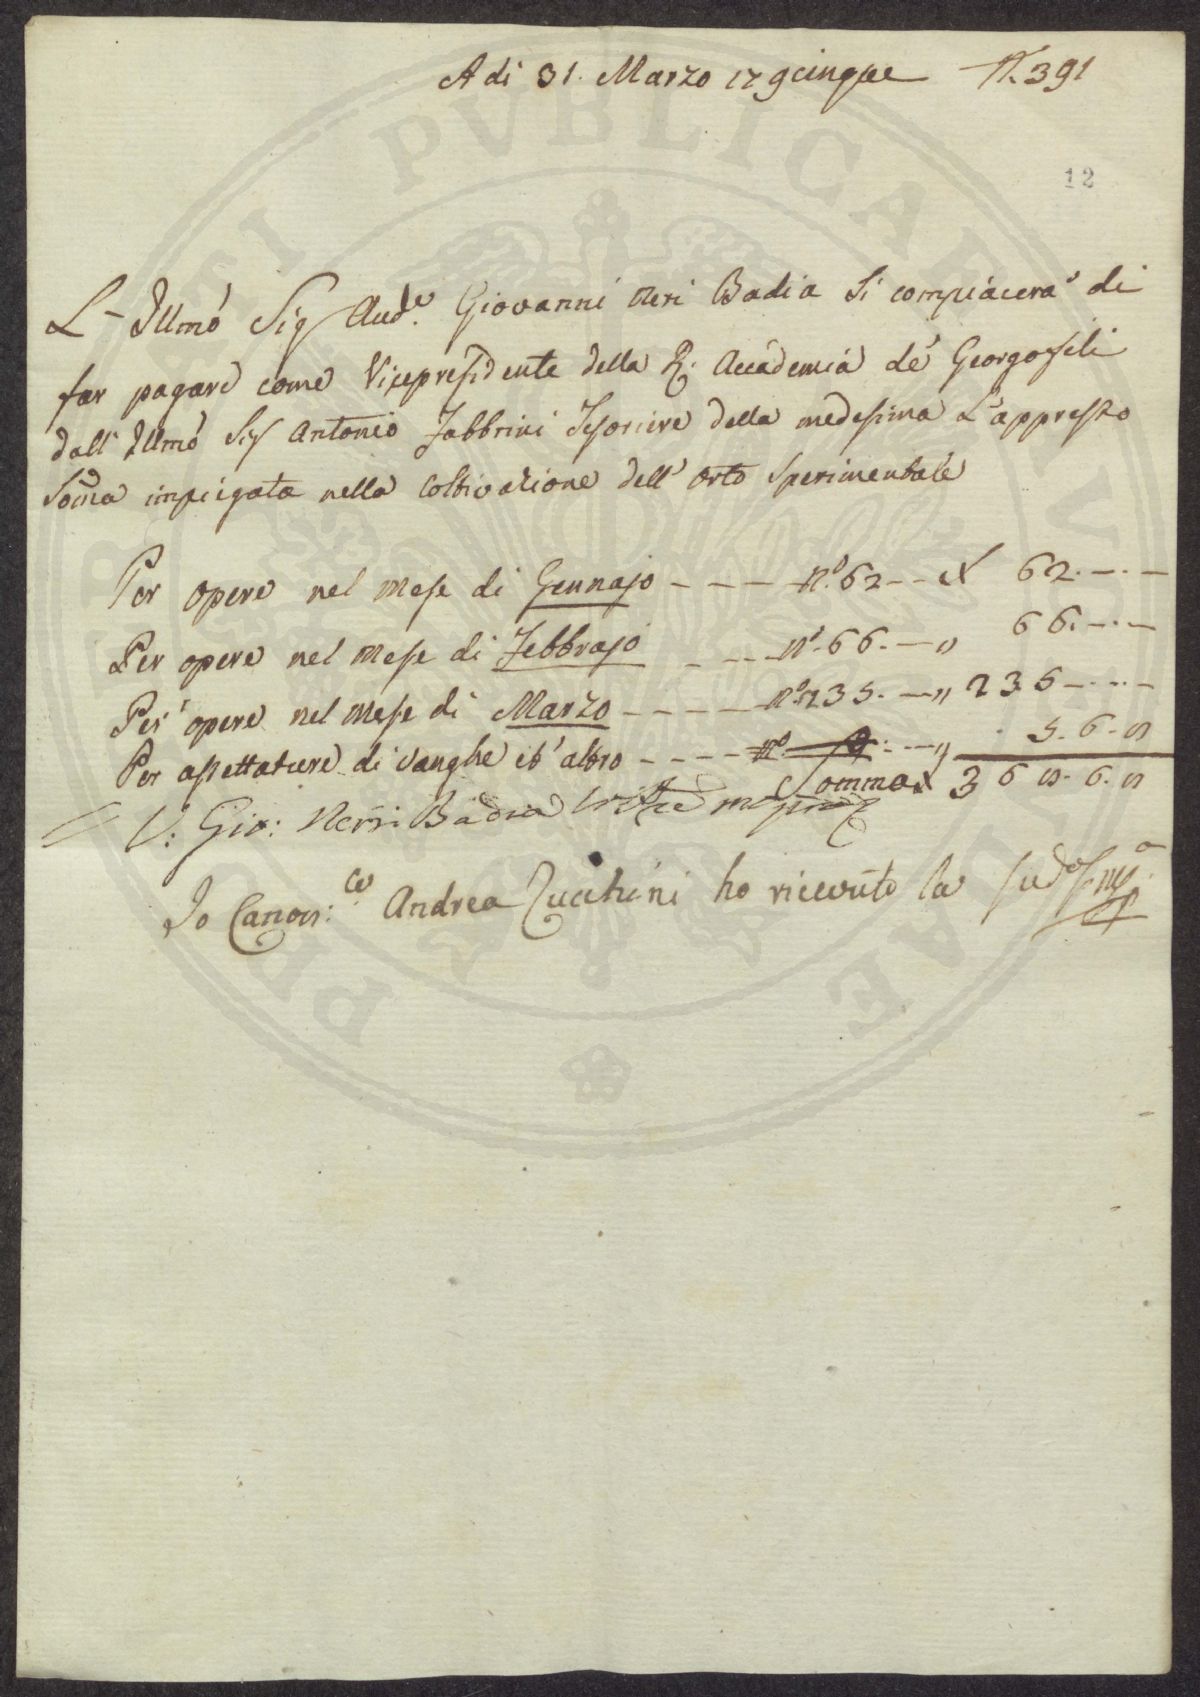 A dì 31. Marzo 179cinque N. 391
12
L'Illmo Sig Aud.e Giovanni Neri Badia si compiacerà di
far pagare come Vicepresidente della R. Accademia de' Georgofili
dall' Illmo Sig Antonio Fabbrini Tesoriere della medesima L'appresso
Soma impiegata nella Coltivazione dell' Orto Sperimentale
Per opere nel Mese di Gennajo - - - - n.o 62 - - £ 62. - . -
Per opere nel Mese di Febbrajo - - - - n.o 66. - - „ 66. - . -
Per opere nel Mese di Marzo - - - - - n.o 235. - - „ 235 - . . -
Per assettature di Vanghe et altro - - - - n.o - - „ 5. 6. 8
Somma £ 368. 6. 8
V: Gio: Neri Badia
Io Canon:co Andrea Zucchini ho ricevuto la sud.a
PVBLICAE